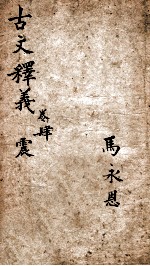 古文釋義
卷肆
震
馬永恩